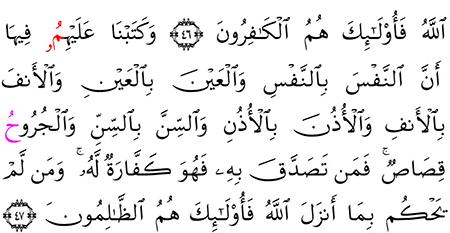 ٱللَّهُ فَأُو۟لَـٰٓئِكَ هُمُ ٱلۡكَـٰفِرُونَ ﴿٤٦﴾ وَكَتَبۡنَا عَلَيۡهِمُۥ فِيهَا
أَنَّ ٱلنَّفۡسَ بِٱلنَّفۡسِ وَٱلۡعَيۡنَ بِٱلۡعَيۡنِ وَٱلۡأَنفَ
بِٱلۡأَنفِ وَٱلۡأُذُنَ بِٱلۡأُذُنِ وَٱلسِّنَّ بِٱلسِّنِّ وَٱلۡجُرُوحُ
قِصَاصٌۚ فَمَن تَصَدَّقَ بِهِۦ فَهُوَ كَفَّارَةٌ لَّهُۥۚ وَمَن لَّمۡ
يَحۡكُم بِمَآ أَنزَلَ ٱللَّهُ فَأُو۟لَـٰٓئِكَ هُمُ ٱلظَّـٰلِمُونَ ﴿٤٧﴾